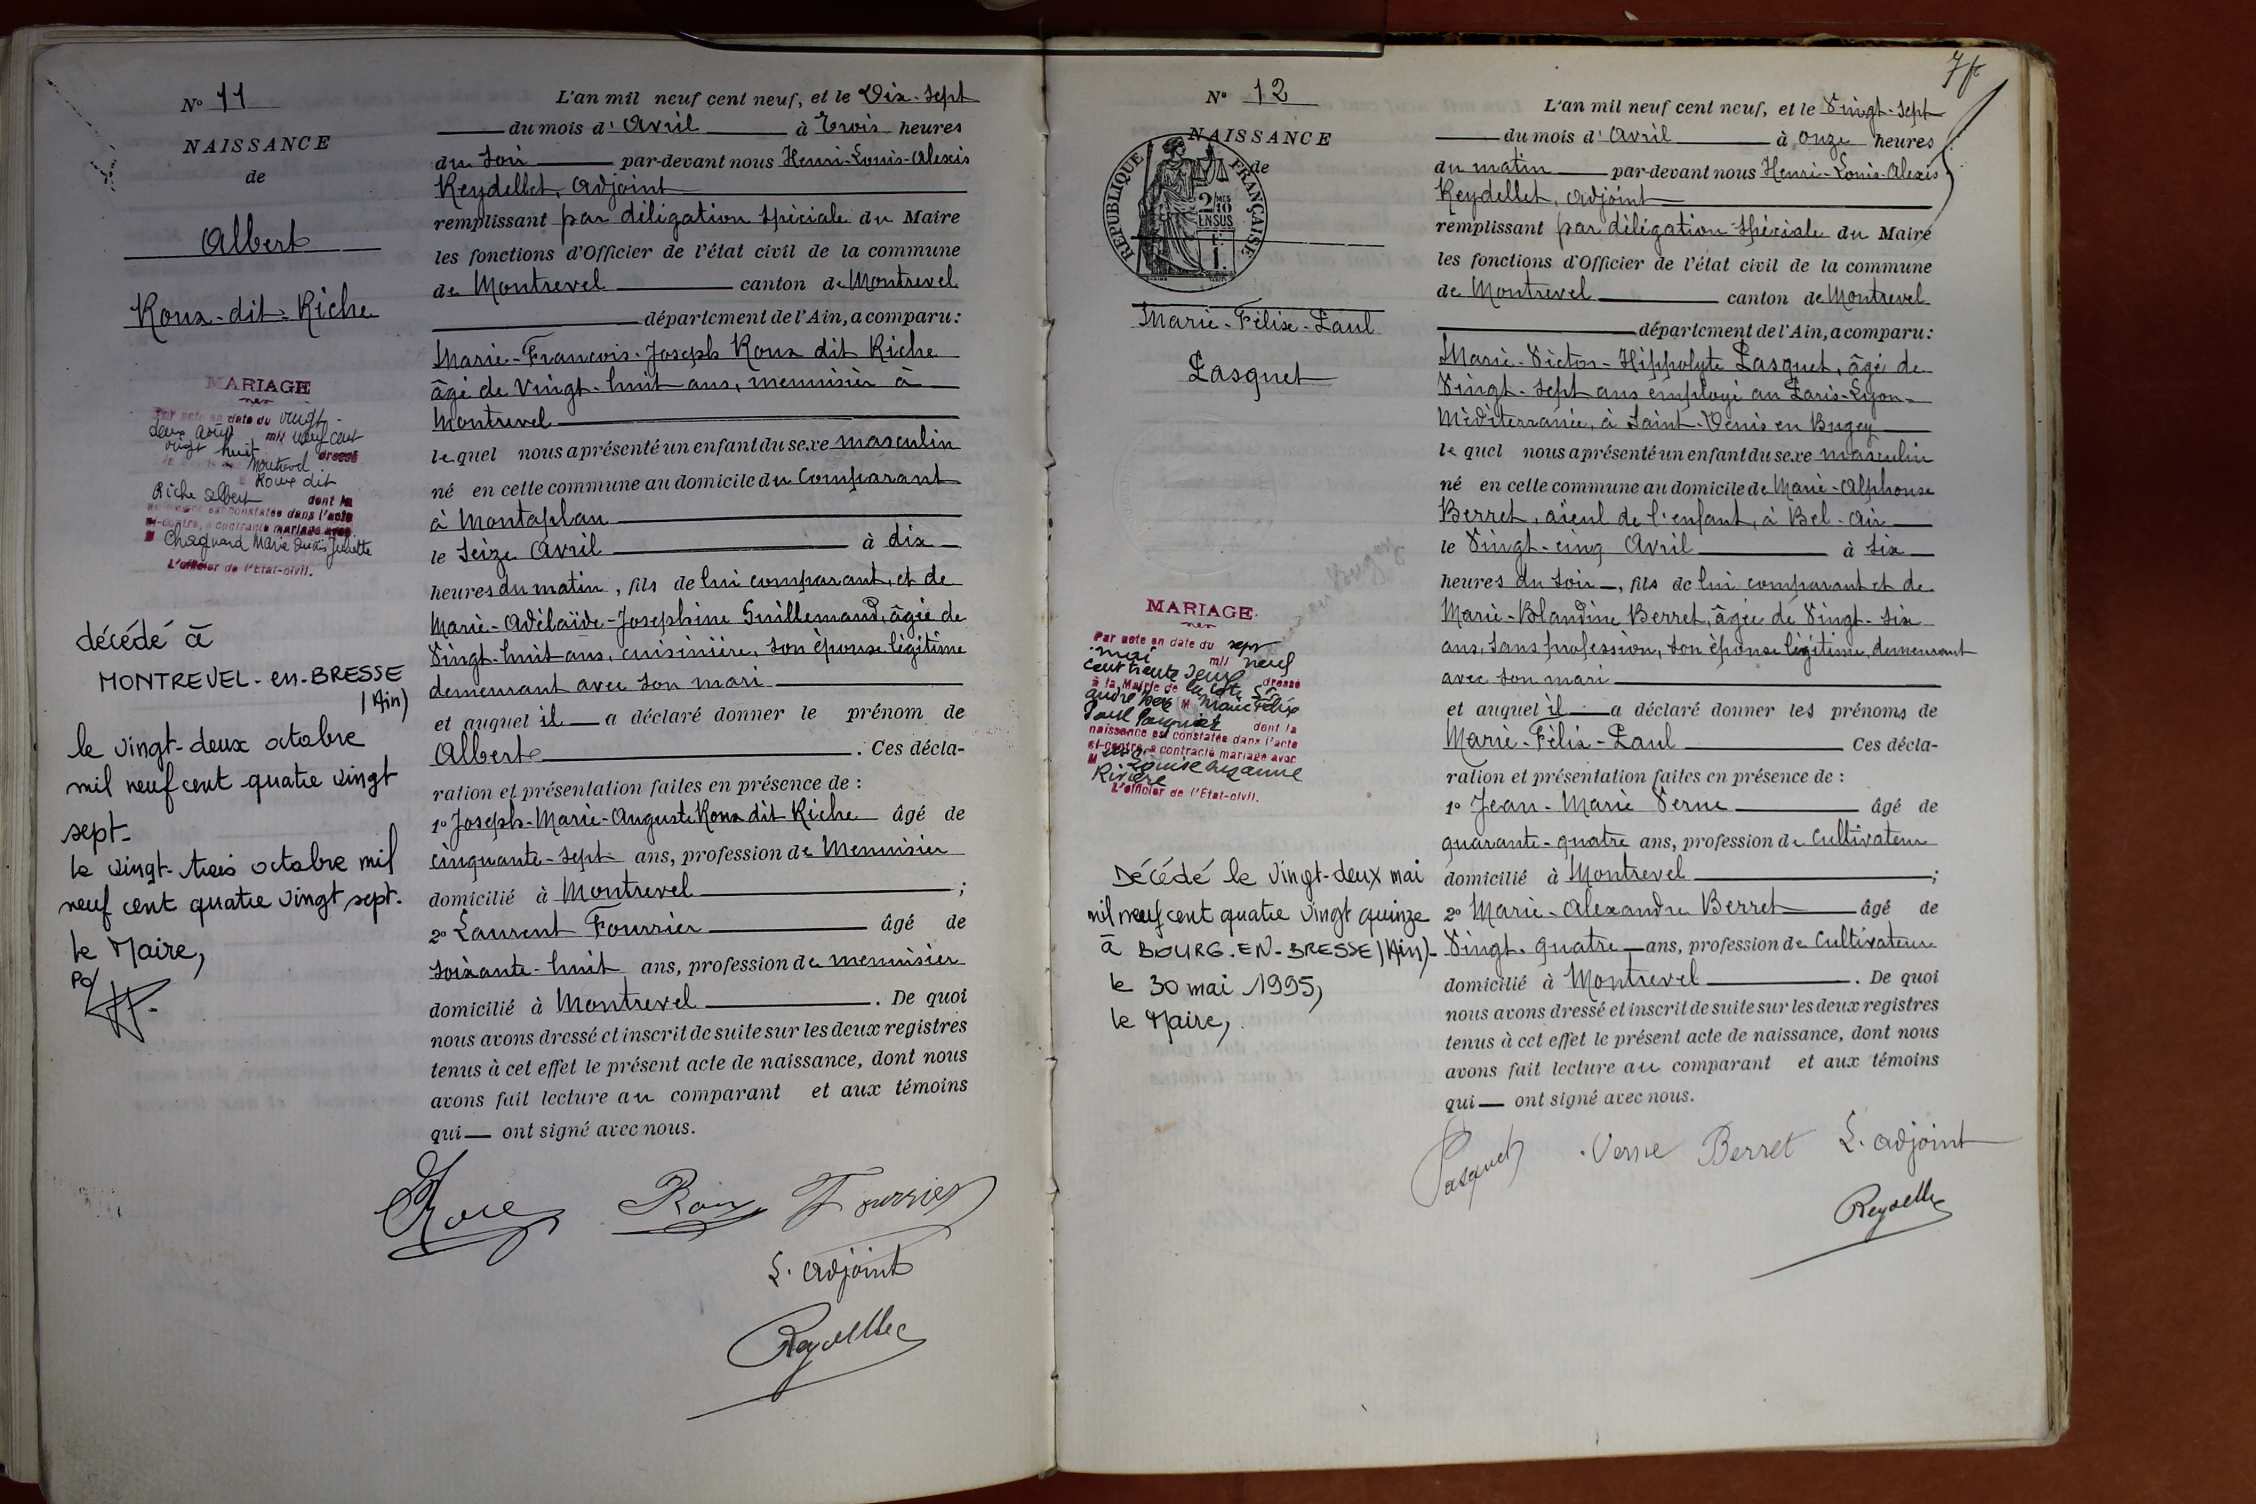 Nº 11
NAISSANCE
de
Albert
Roux-dit-Riche
MARIAGE
Par acte en date du vingt-
deux août mil neuf cent
vingt huit dressé
Montrevel
Roux dit
Riche Albert dont la
naissance est constatée dans l'acte
ci-contre, a contracté mariage avec
M Chagnard Marie Juliette
L'officier de l'Etat-civil.
décédé à
MONTREVEL-en-BRESSE
(Ain)
le vingt-deux octobre
mil neuf cent quatre vingt
sept-
le vingt-trois octobre mil
neuf cent quatre vingt sept.
le Maire,
Po/
L'an mil neuf cent neuf, et le Dix-sept
du mois d'Avril à Trois heures
du soir par-devant nous Henri-Louis-Alexis
Reydellet, adjoint
remplissant par délégation spéciale du Maire
les fonctions d'Officier de l'état civil de la commune
de Montrevel canton de Montrevel
département de l'Ain, a comparu:
Marie-François-Joseph Roux dit Riche
âgé de vingt-huit ans, menuisier à
Montrevel
lequel nous a présenté un enfant du sexe masculin
né en cette commune au domicile du comparant
à Montaplan
le seize Avril à dix
heures du matin, fils de lui comparant, et de
Marie-Adélaïde-Joséphine Guillemaud, âgée de
vingt-huit ans, cuisinière, son épouse légitime
demeurant avec son mari
et auquel il a déclaré donner le prénom de
Albert. Ces décla-
ration et présentation faites en présence de :
1º Joseph-Marie-Auguste Roux dit Riche âgé de
cinquante-sept ans, profession de Menuisier
domicilié à Montrevel ;
2º Laurent Fourrier âgé de
soixante-huit ans, profession de menuisier
domicilié à Montrevel. De quoi
nous avons dressé et inscrit de suite sur les deux registres
tenus à cet effet le présent acte de naissance, dont nous
avons fait lecture au comparant et aux témoins
qui ont signé avec nous.
Roux Roux Fourrier
L. adjoint
Reydellet
7
Nº 12
NAISSANCE
de
REPUBLIQUE FRANÇAISE
2/10 EN SUS
Marie-Félix-Paul
Pasquet
MARIAGE
Par acte en date du sept
mai mil neuf
cent trente deux dressé
à la Mairie de la Côte St
André M Marie Félix
Paul Pasquet dont la
naissance est constatée dans l'acte
ci-contre, a contracté mariage avec
M Louise Suzanne
Rivière
L'officier de l'Etat-civil.
Décédé le vingt-deux mai
mil neuf cent quatre vingt quinze
à BOURG-EN-BRESSE (Ain)-
le 30 mai 1995,
le Maire,
L'an mil neuf cent neuf, et le Vingt-sept
du mois d'Avril à onze heures
du matin par-devant nous Henri-Louis-Alexis
Reydellet, adjoint
remplissant par délégation spéciale du Maire
les fonctions d'Officier de l'état civil de la commune
de Montrevel canton de Montrevel
département de l'Ain, a comparu:
Marie-Victor-Hippolyte Pasquet, âgé de
vingt-sept ans employé au Paris-Lyon-
Méditerranée, à Saint-Denis en Bugey
lequel nous a présenté un enfant du sexe masculin
né en cette commune au domicile de Marie-Alphonse
Berret, aïeul de l'enfant, à Bel-Air
le Vingt-cinq Avril à six
heures du soir, fils de lui comparant et de
Marie-Blandine Berret, âgée de vingt-six
ans, sans profession, son épouse légitime, demeurant
avec son mari
et auquel il a déclaré donner les prénoms de
Marie-Félix-Paul Ces décla-
ration et présentation faites en présence de :
1º Jean-Marie Verne âgé de
quarante-quatre ans, profession de cultivateur
domicilié à Montrevel ;
2º Marie-Alexandre Berret âgé de
vingt-quatre ans, profession de cultivateur
domicilié à Montrevel. De quoi
nous avons dressé et inscrit de suite sur les deux registres
tenus à cet effet le présent acte de naissance, dont nous
avons fait lecture au comparant et aux témoins
qui ont signé avec nous.
Pasquet Verne Berret L. adjoint
Reydellet